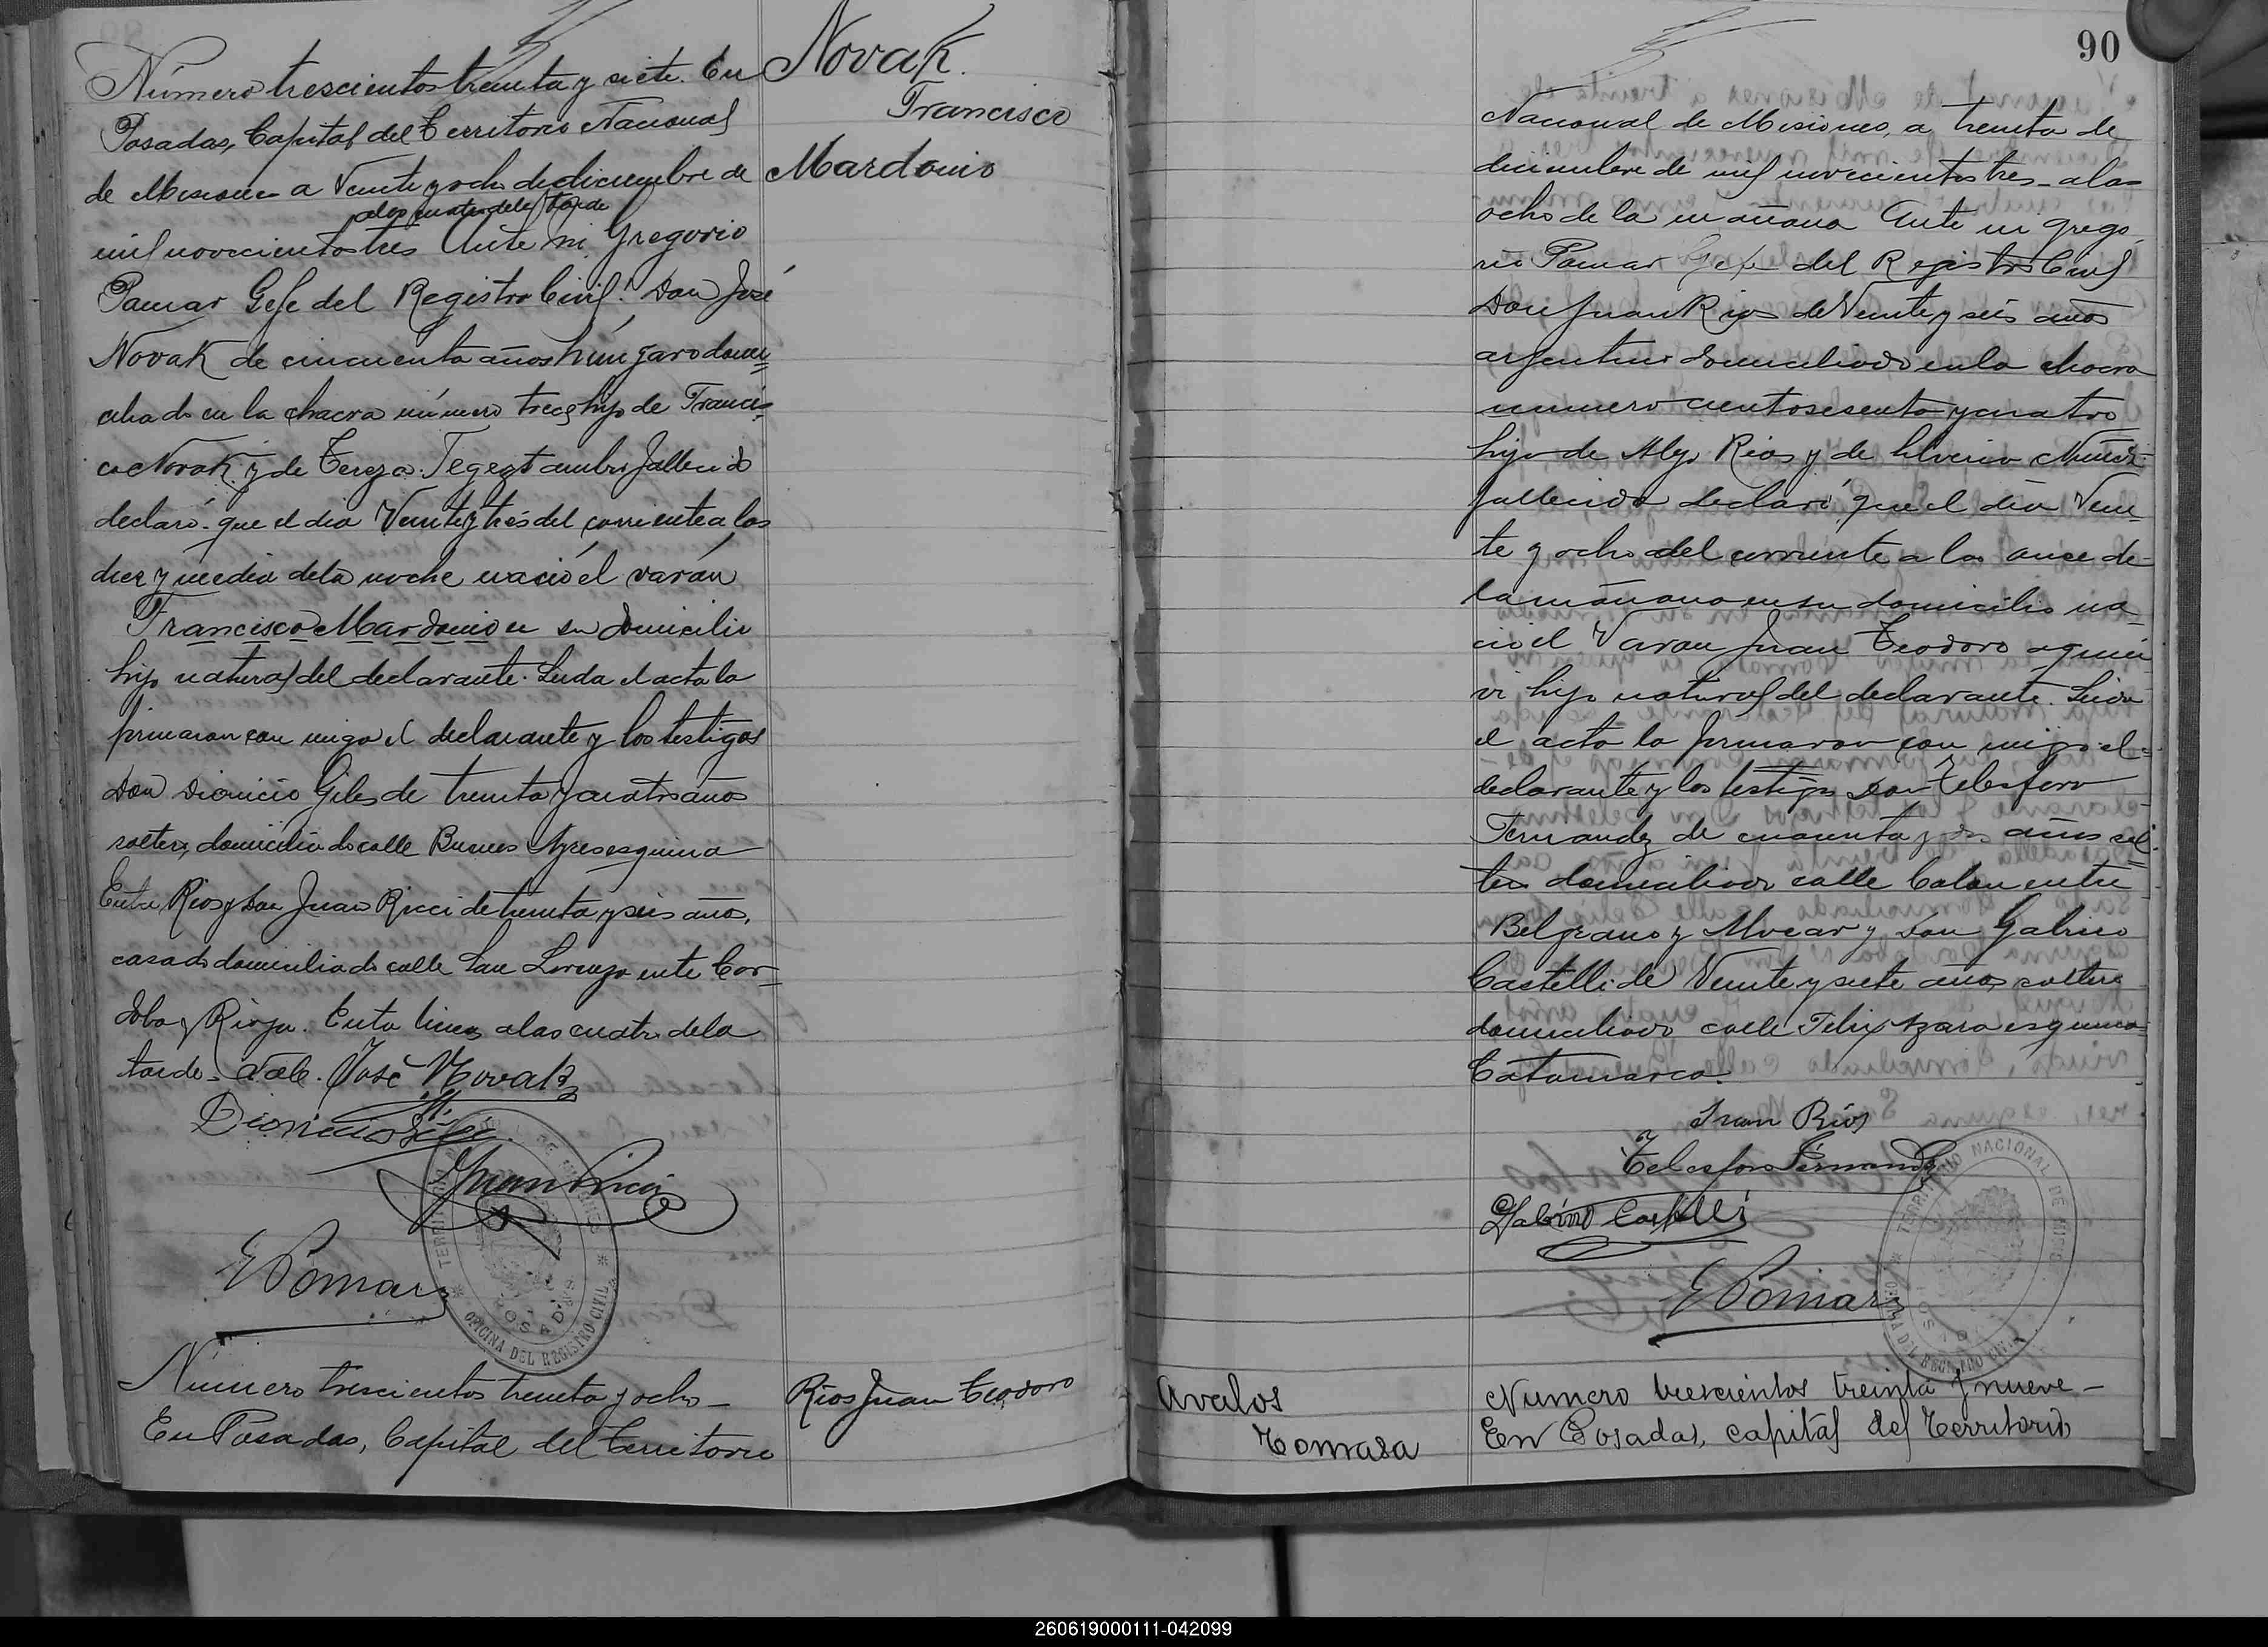 Número trescientos treinta y siete. En
Posadas, Capital del Territorio Nacional
de Misiones a Veinte y ocho de diciembre de
a las cuatro de la tarde
mil novecientos tres Ante mi Gregorio
Pomar Gefe del Registro Civil. Don José
Novak de cincuenta años húngaro domi
ciliado en la chacra número trece hijo de Francis
co Novak y de Tereza Tegezt ambos fallecido
declaró que el dia Veinte y tres del corriente a las
diez y media de la noche nació el varón
Francisco Mardonio en su domicilio
hijo natural del declarante. Leida el acta la
firmaron con migo el declarante y los testigos
Don Dionicio Giles de treinta y cuatro años
soltero, domiciliado calle Buenos Ayres esquina
Entre Rios y Don Juan Ricci de treinta y seis años,
casado domiciliado calle San Lorenzo entre Cor-
doba y Rioja. Entre lineas a las cuatro de la
tarde - Vale. José Novak
Dionicio Giles
Juan Ricci
G Pomar
TERRITORIO NACIONAL DE MISIONES
POSADAS
OFICINA DEL REGISTRO CIVIL
Número trescientos treinta y ocho -
En Posadas, Capital del Territorio
Novak.
Francisco
Mardonio
Rios Juan Teodoro
90
Nacional de Misiones, a treinta de
diciembre de mil novecientos tres - a las
ocho de la mañana Ante mi Grego
rio Pomar Gefe del Registro Civil
Don Juan Rios de Veinte y seis años
argentino domiciliado en la chacra
numero ciento sesenta y cuatro
hijo de Alejo Rios y de Nuñez
fallecida declaró que el dia Vein
te y ocho del corriente a las once de
la mañana en su domicilio na
ció el Varon Juan Teodoro a quien
vi hijo natural del declarante. Leida
el acta la firmaron con migo el
declarante y los testigos Don Telesforo
Fernandez de cuarenta y dos años sol
tero domiciliado calle Colon entre
Belgrano y Alvear y Don Gabino
Castelli de Veinte y siete años soltero
domiciliado calle Felix Azara esquina
Catamarca.
Juan Ríos
Telesforo Fernandez
Gabino Castelli
G Pomar
TERRITORIO NACIONAL DE MISIONES
POSADAS
OFICINA DEL REGISTRO CIVIL
Avalos
Tomasa
Numero trescientos treinta y nueve -
En Posadas, capital del Territorio
260619000111-042099